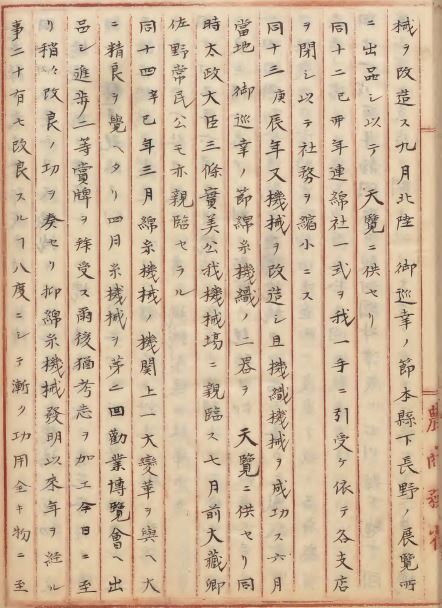 械ヲ改造ス九月北陸　御巡幸ノ節本縣下長野ノ展覧所
ニ出品シ以テ　天覧ニ供セリ
同十二己卯年連綿社一式ヲ我一手ニ引受ケ依テ各支店
ヲ閉シ以テ社務ヲ縮小ニス
同十三庚辰年又機械ヲ改造シ且機織機械ヲ成功ス六月
當地　御巡幸ノ節綿糸機織ノ二器ヲ　天覧ニ供セリ同
時太政大臣三條實美公我機械場ニ親臨ス七月前大藏卿
佐野常民公モ亦親臨セラル
同十四辛巳年三月綿糸機械ノ機関上一大變革ヲ與ヘ大
ニ精良ヲ覺ヘタリ四月糸機械ヲ第二回勸業博覧會ヘ出
品シ進歩二等賞牌ヲ拜受ス爾後猶考志ヲ加エ今日ニ至
リ稍々改良ノ功ヲ奏セリ抑綿糸機械發明以來年ヲ經ル
事二十有七改良スルヿ八度ニシテ漸ク功用全キ物ニ至
農商務省